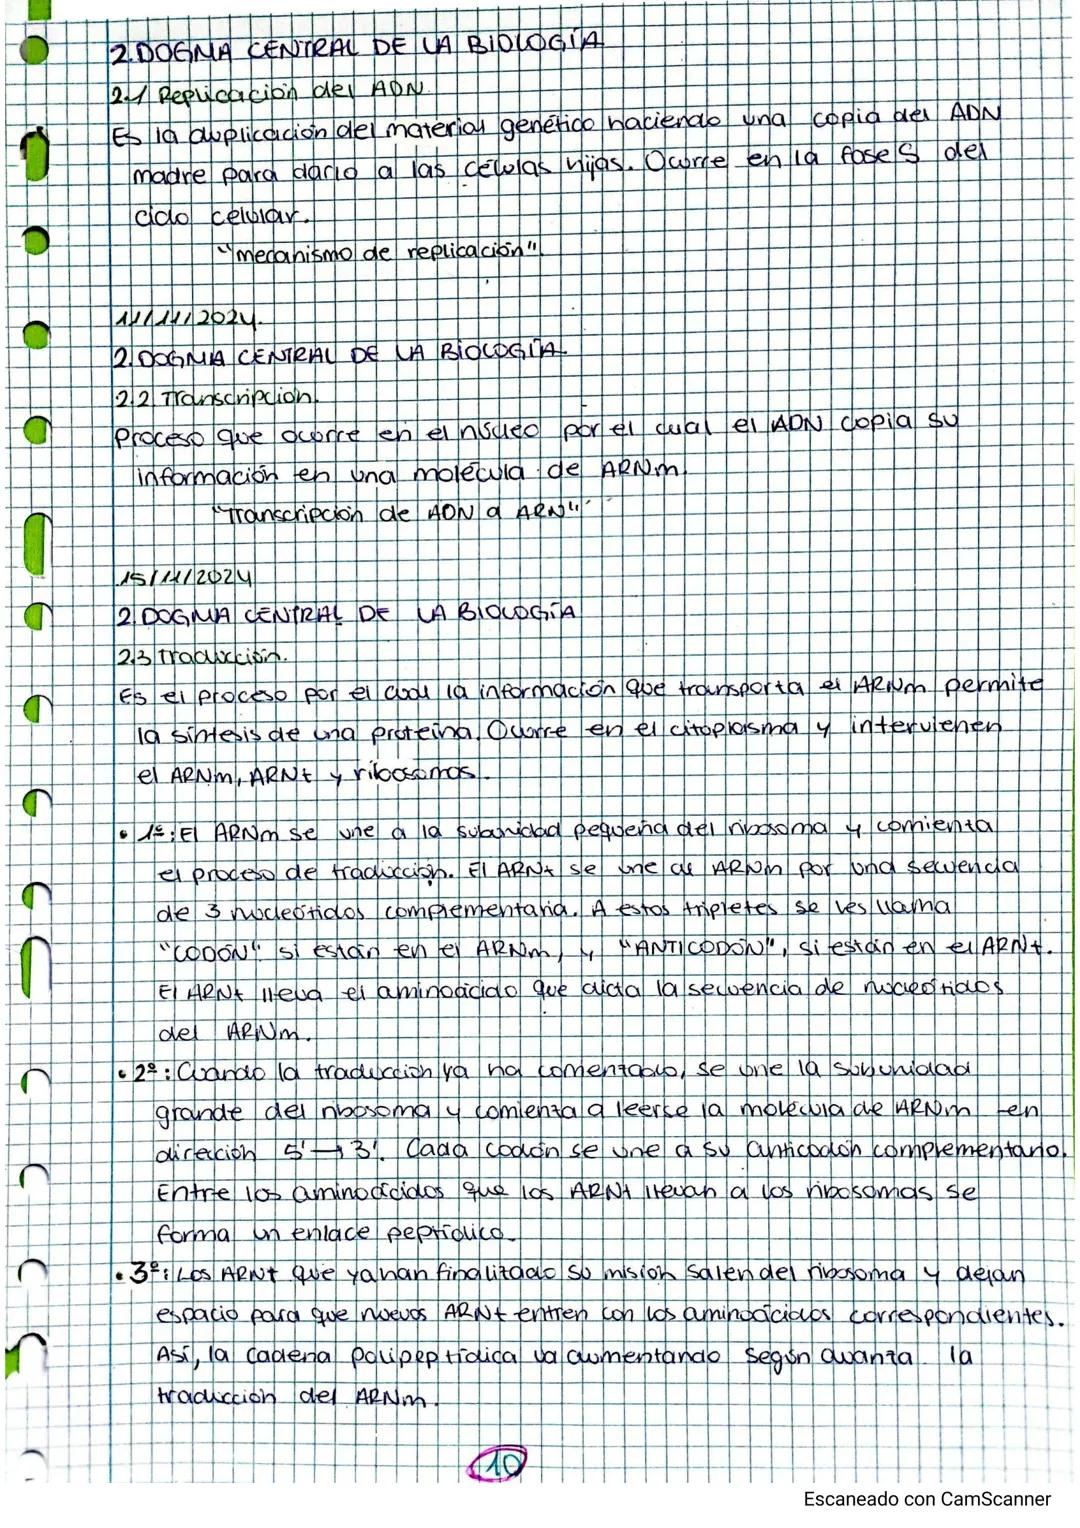 2. DOGMA CENTRAL DE LA BIOLOGÍA
2.1 Replicación del ADN
Es la duplicación del material genético haciendo una copia del ADN
madre para darlo a las células hijas. Ocurre en la fase S del
ciclo celular.
"mecanismo de replicación".
11/11/2024.
2. DOGMA CENTRAL DE LA BIOLOGÍA.
2.2 Transcripción.
Proceso que ocurre en el núcleo por el cual el ADN copia su
información en una molécula de ARNm.
"Transcripción de ADN a ARN"
15/11/2024
2. DOGMA CENTRAL DE LA BIOLOGÍA
2.3 Traducción.
Es el proceso por el cual la información que transporta el ARNm permite
la síntesis de una proteína. Ocurre en el citoplasma y intervienen
el ARNm, ARNt y ribosomas.
• 1º: El ARNm se une a la subunidad pequeña del ribosoma y comienza
el proceso de traducción. El ARNt se une al ARNm por una secuencia
de 3 nucleótidos complementaria. A estos tripletes se les llama
"CODÓN" si están en el ARNm, y "ANTICODÓN", si están en el ARNt.
El ARNt lleva el aminoácido que dicta la secuencia de nucleótidos
del ARNm.
• 2º: Cuando la traducción ya ha comenzado, se une la subunidad
grande del ribosoma y comienza a leerse la molécula de ARNm en
dirección 5'→3'. Cada codón se une a su anticodón complementario.
Entre los aminoácidos que los ARNt llevan a los ribosomas se
forma un enlace peptídico.
• 3º: Los ARNt que ya han finalizado su misión salen del ribosoma y dejan
espacio para que nuevos ARNt entren con los aminoácidos correspondientes.
Así, la cadena polipeptídica va aumentando según avanza la
traducción del ARNm.
10
Escaneado con CamScanner